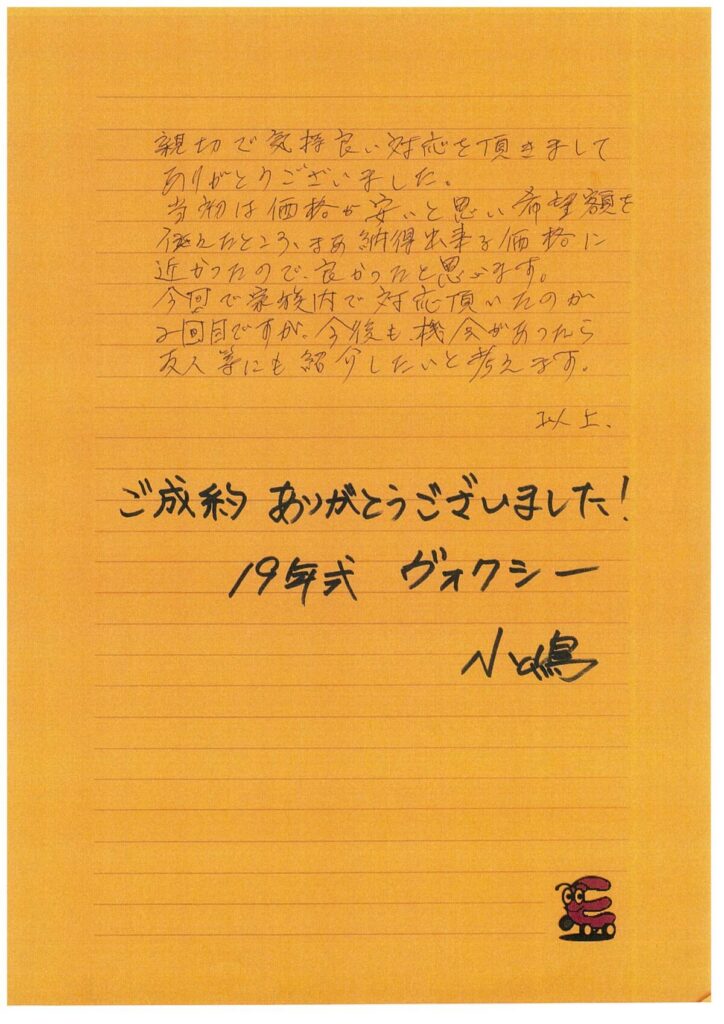 親切で気持良い対応を頂きまして
ありがとうございました。
当初は価格が安いと思い希望額を
伝えたところ、まあ納得出来る価格に
近かったので、良かったと思います。
今回で家族内で対応頂いたのが
2回目ですが、今後も機会があったら
友人等にも紹介したいと考えます。
以上、
ご成約 ありがとうございました!
19年式 ヴォクシー